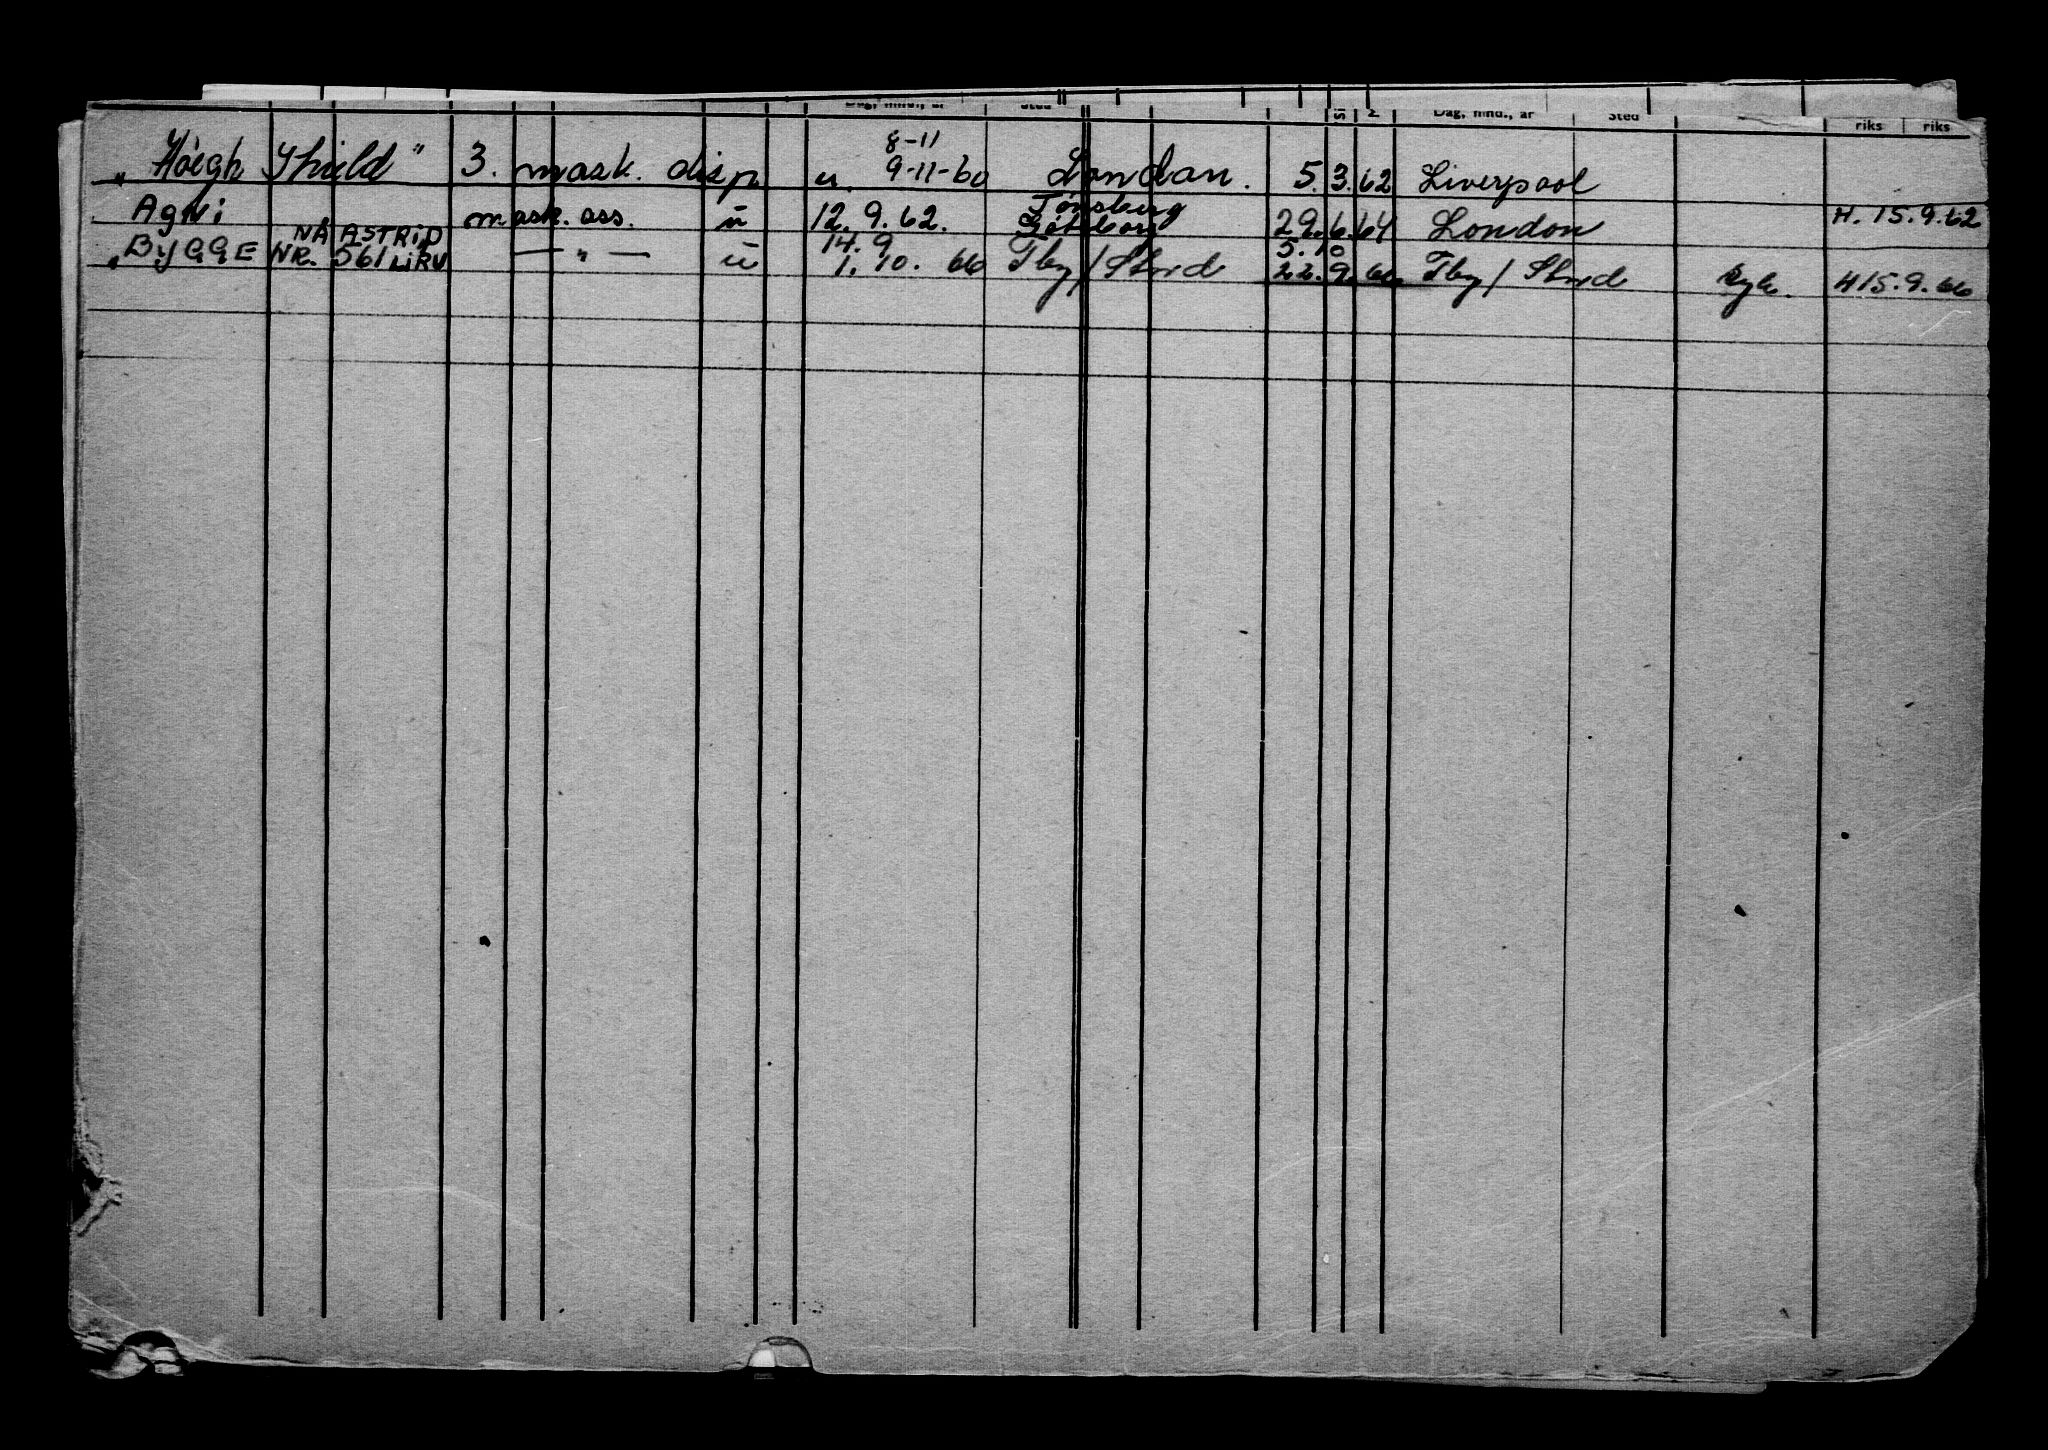 Dag, mnd., år Sted Dag, mnd., år Sted riks riks
8-11
„Höegh Shield" 3. mask. disp u. 9-11-60 London. 5.3.62 Liverpool
Tønsberg
Agni mask. ass. u 12.9.62. Göteborg 29.6.64 London H. 15.9.62
NÅ ASTRID 14.9 5.10
„BYGGE NR. 561 LiRV — „ — u 1.10.66 Tbg / Stord 22.9.66 Tbg / Stord syk. H 15.9.66